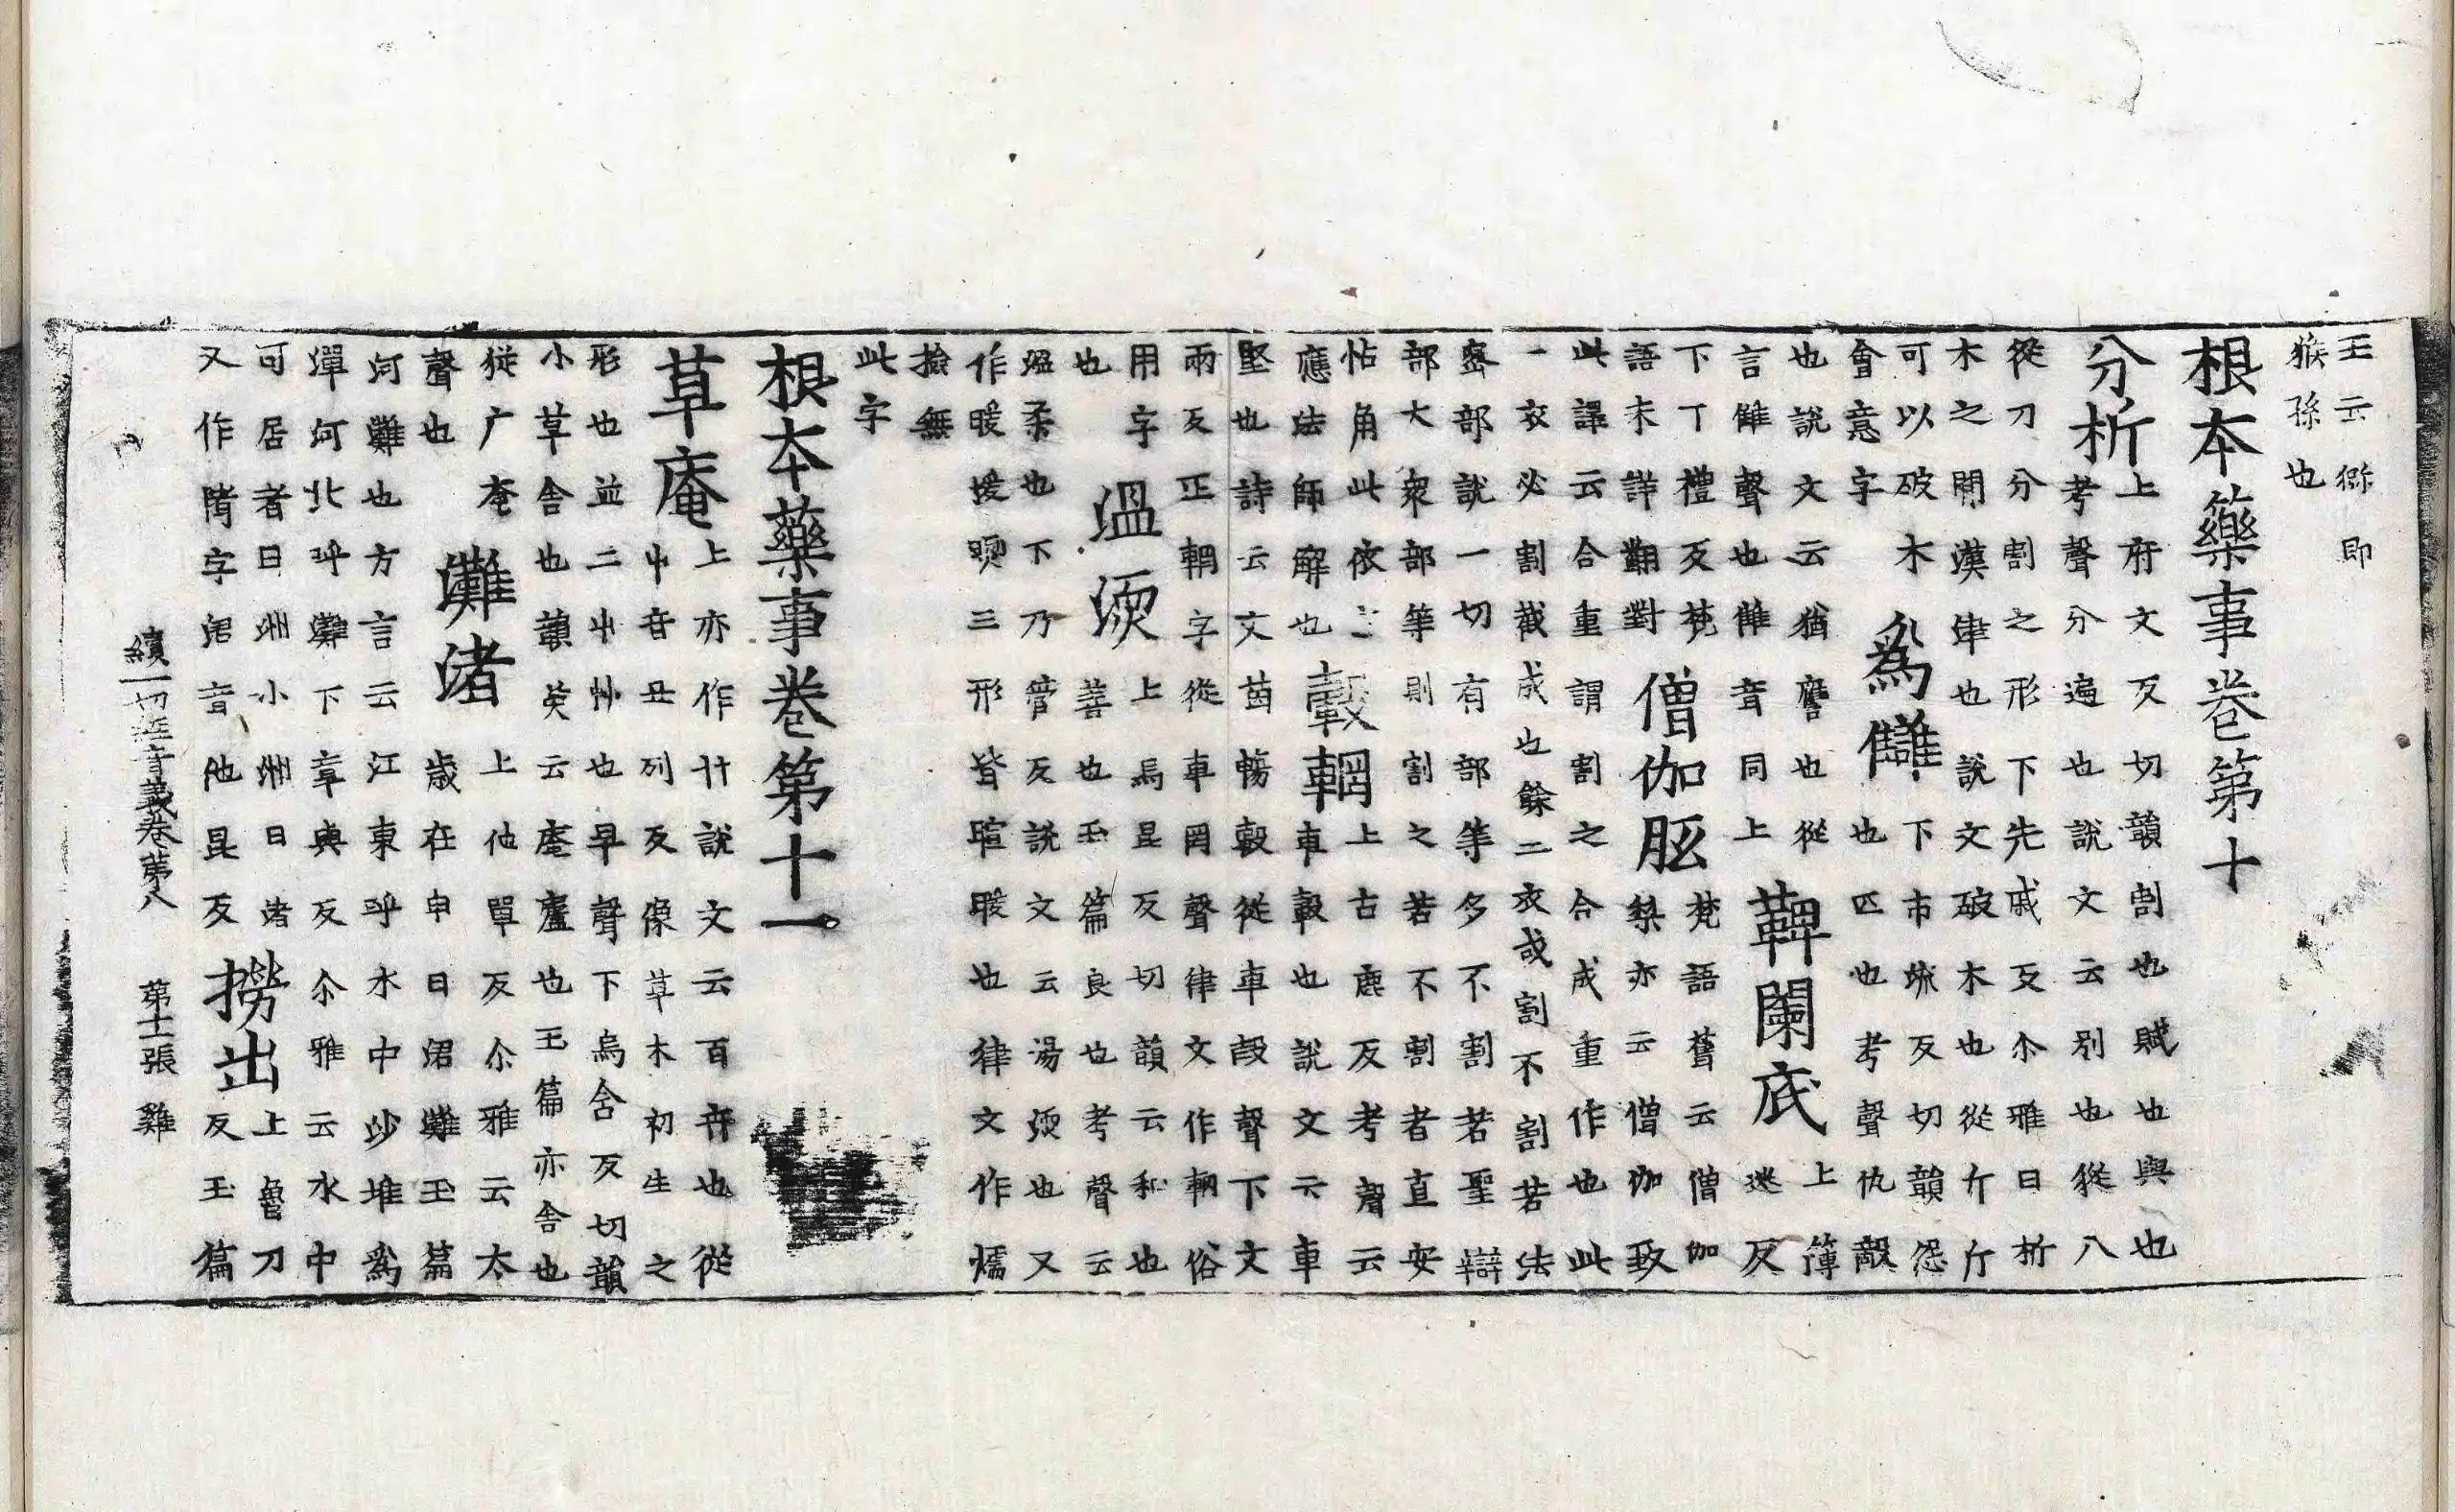 王云獼即
猴孫也
根本藥事卷第十
分析
上府文反切韻割也賦也與也
考聲分遍也說文云別也從八
從刀分割之形下先戚反尒雅曰析
木之閒漢津也說文破木也從斤斤
可以破木
會意字
為讎
下市琉反切韻怨
也匹也考聲仇敵
也說文云猶譍也從
言雔聲也雔音同上
鞞闌底
上簿
迷反
下丁禮反梵
語未詳翻對
僧伽胝
梵語舊云僧伽
梨亦云僧伽致
此譯云合重謂割之合成重作也此
一衣必割截成也餘二衣或割不割若法
密部說一切有部等多不割若聖辯
部大衆部等則割之若不割者直安
怗角此依
應法師解也
轂輞
上古鹿反考聲云
車轂也說文云車
堅也詩云文茵暢轂從車㱿聲下文
兩反正輞字從車罔聲律文作輞俗
用字
也
溫煗
上烏昆反切韻云和也
善也玉篇良也考聲云
煴柔也下乃管反說文云湯煗也又
作暖煖㬉三形皆暄暖也律文作燸
撿無
此字
根本藥事卷第十一
草庵
上亦作廿說文云百卉也從
屮音丑列反像草木初生之
形也並二屮艸也早聲下烏含反切韻
小草舍也韻英云庵廬也玉篇亦舍也
從广奄
聲也
灘渚
上他單反尒雅云太
歲在申曰涒灘玉篇
河灘也方言云江東呼水中沙堆為
潬河北呼灘下章與反尒雅云水中
可居者曰洲小洲曰渚
又作陼字涒音他昆反
撈出
上魯刀
反玉篇
續一切經音義卷第八 第十二張 雞